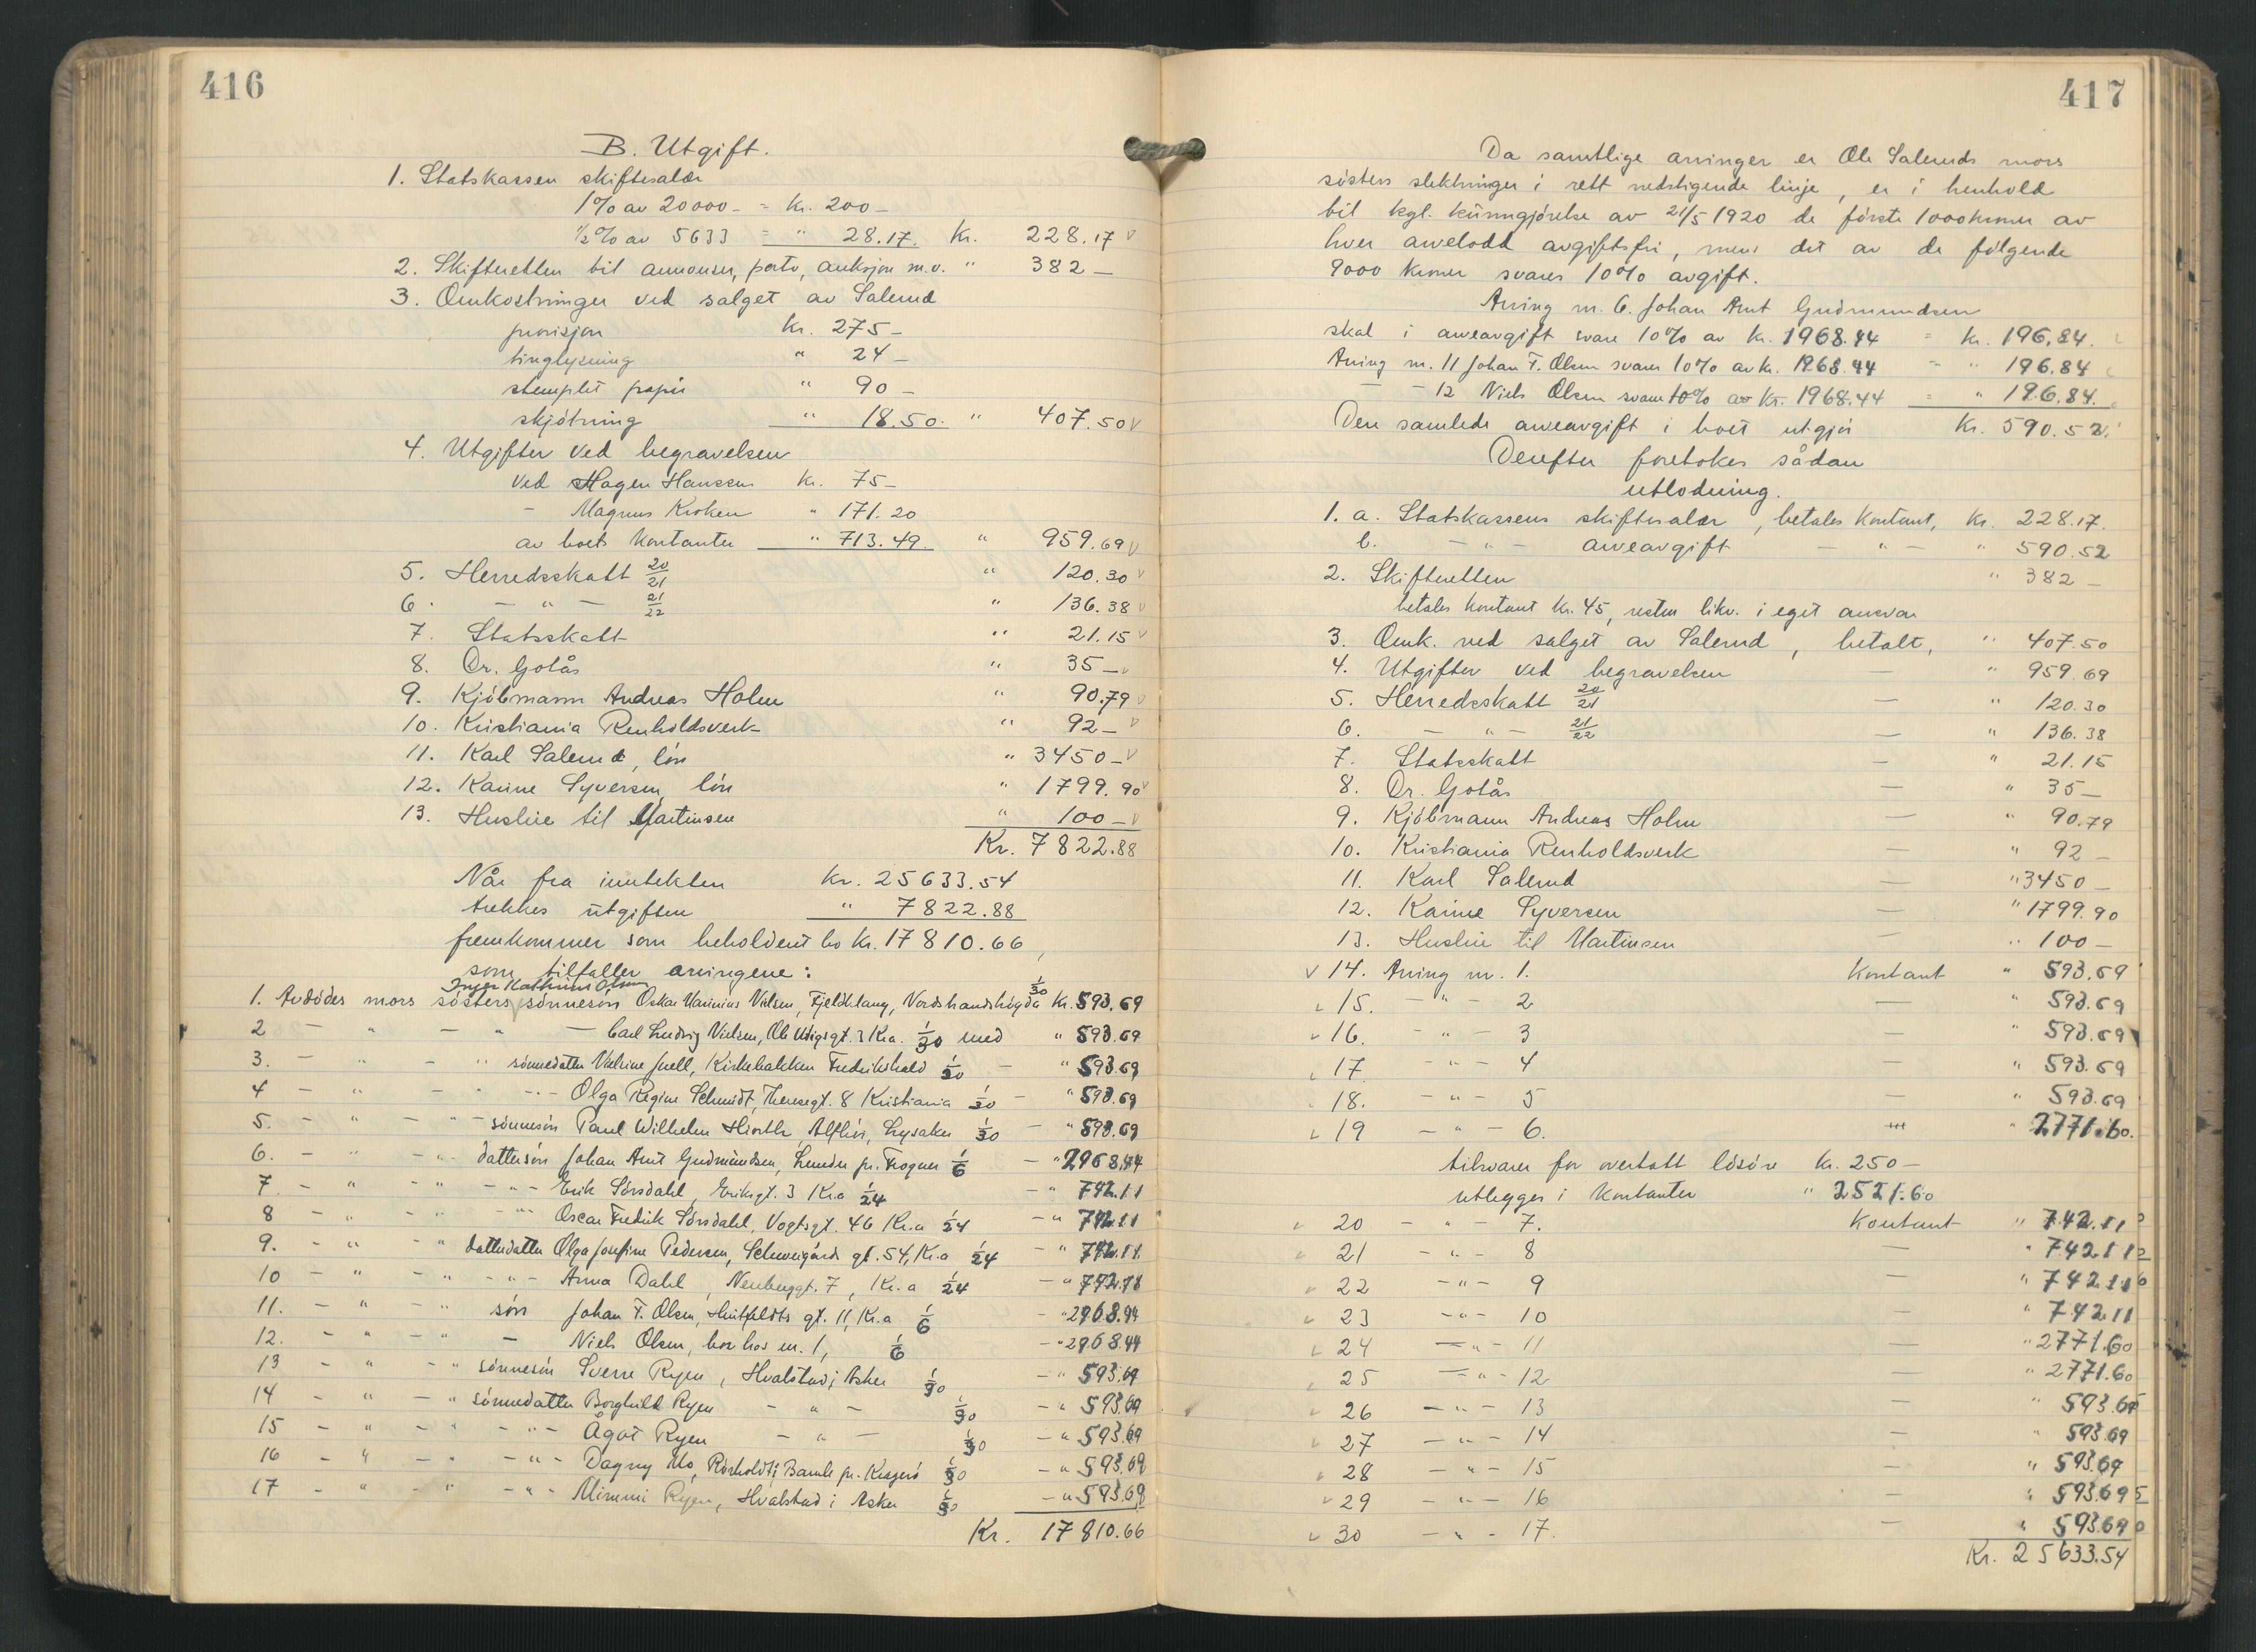 416
B. Utgift.
1. Statskassen skiftesalær
1% av 20000- = Kr. 200-
½% av 5633 = " 28.17. Kr. 228.17
2. Skifteretten til annonser, porto, auksjon m.v. " 382-
3. Omkostninger ved salget av Salerud
provisjon Kr. 275-
tinglysning " 24-
stemplet papir " 90-
skjötning " 18.50. " 407.50
4. Utgifter ved begravelsen
ved Hagen Hanssen Kr. 75-
- Magnus Kroken " 171.20
av boets kontanter " 713.49. " 959.69
5. Herredsskatt 20/21 " 120.30
6. - " - 21/22 " 136.38
7. Statsskatt " 21.15
8. Dr. Gotås " 35-
9. Kjöbmann Andreas Holm " 90.79
10. Kristiania Renholdsverk " 92-
11. Karl Salerud, lön " 3450-
12. Karine Syversen, lön " 1799.90
13. Husleie til Martinsen " 100-
Kr. 7822.88
Når fra inntekten Kr. 25633.54
trekkes utgiften " 7822.88
fremkommer som beholdent bo Kr. 17810.66,
som tilfaller arvingene:
Inger Kathrine Olsens
1. Avdödes mors sösters sönnesön Oskar Marinius Nielsen, Fjeldhlang, Nordstrandshögda 1/30 Kr. 593.69
2 - " - " - Carl Ludvig Nielsen, Ole Vdigsgt. 3 Kr.a. 1/30 med " 593.69
3. - " - " sönnedatter Valrine Juell, Kirkebakken Fredrikshald 1/30 - " 593.69
4 - " - " - " - Olga Regine Schmidt, Theresegt. 8 Kristiania 1/30 - " 593.69
5. - " - " - sönnesön Paul Wilhelm Hiorth, Alfhör, Lysaker 1/30 - " 593.69
6. - " - " - dattersön Johan Arnt Gudmundsen, Lunder pr. Frogner 1/6 - " 2968.44
7. - " - " - " - Erik Sörsdahl, Eriksgt. 3 Kr.a 1/24 - " 742.11
8 - " - " - " - Oscar Fredrik Sörsdahl, Vogtsgt. 46 Kr.a 1/24 - " 742.11
9. - " - " datterdatter Olga Josefine Pedersen, Schweigårds gt. 54, Kr.a 1/24 - " 742.11
10 - " - " - " - Anna Dahl, Neuberggt. 7, Kr.a 1/24 - " 742.11
11. - " - " sön Johan F. Olsen, Huitfeldts gt. 11, Kr.a 1/6 - " 2968.44
12. - " - " - Niels Olsen, bor hos nr. 1, 1/6 - " 2968.44
13 - " - " sönnesön Sverre Ryen, Hvalstad i Asker 1/30 - " 593.69
14 - " - " sönnedatter Borghild Ryen - " - 1/30 - " 593.69
15 - " - " - " - Ågot Ryen - " - 1/30 - " 593.69
16 - " - " - " - Dagny Mo, Rörholdt i Bamle pr. Kragerö 1/30 - " 593.69
17 - " - " - " - Mimmi Ryen, Hvalstad i Asker 1/30 - " 593.69
Kr. 17810.66
417
Da samtlige arvinger er Ole Saleruds mors
sösters slektninger i rett nedstigende linje, er i henhold
til kgl. kunngjörelse av 21/5 1920 de förste 1000 kroner av
hver arvelodd avgiftsfri, mens det av de fölgende
9000 kroner svares 10% avgift.
Arving nr. 6. Johan Arnt Gudmundsen
skal i arveavgift svare 10% av kr. 1968.44 = kr. 196.84.
Arving nr. 11 Johan F. Olsen svarer 10% av kr. 1968.44 = " 196.84
- - 12 Niels Olsen svarer 10% av kr. 1968.44 = " 196.84.
Den samlede arveavgift i boet utgjör Kr. 590.52.
Derefter foretokes sådan
utlodning.
1. a. Statskassens skiftesalær, betales kontant, Kr. 228.17.
b. - " - arveavgift - " - " 590.52
2. Skifteretten " 382-
betales kontant kr. 45, resten likv. i eget ansvar
3. Omk. ved salget av Salerud, betalt, " 407.50
4. Utgifter ved begravelsen - " 959.69
5. Herredsskatt 20/21 - " 120.30
6. - " - 21/22 - " 136.38
7. Statsskatt - " 21.15
8. Dr. Gotås - " 35-
9. Kjöbmann Andreas Holm - " 90.79
10. Kristiania Renholdsverk - " 92-
11. Karl Salerud - " 3450-
12. Karine Syversen - " 1799.90
13. Husleie til Martinsen - " 100-
14. Arving nr. 1. Kontant " 593.69
15. - " - 2 - " 593.69
16. - " - 3 - " 593.69
17 - " - 4 - " 593.69
18. - " - 5 - " 593.69
19 - " - 6. " 2771.60.
tilsvarer for overtatt lösöre Kr. 250-
utlegges i kontanter " 2521.60
20 - " - 7. Kontant " 742.11
21 - " - 8 - " 742.11
22 - " - 9 - " 742.11
23 - " - 10 - " 742.11
24 - " - 11 - " 2771.60
25 - " - 12 - " 2771.60
26 - " - 13 - " 593.69
27 - " - 14 - " 593.69
28 - " - 15 - " 593.69
29 - " - 16 - " 593.69
30 - " - 17. - " 593.69
Kr. 25633.54